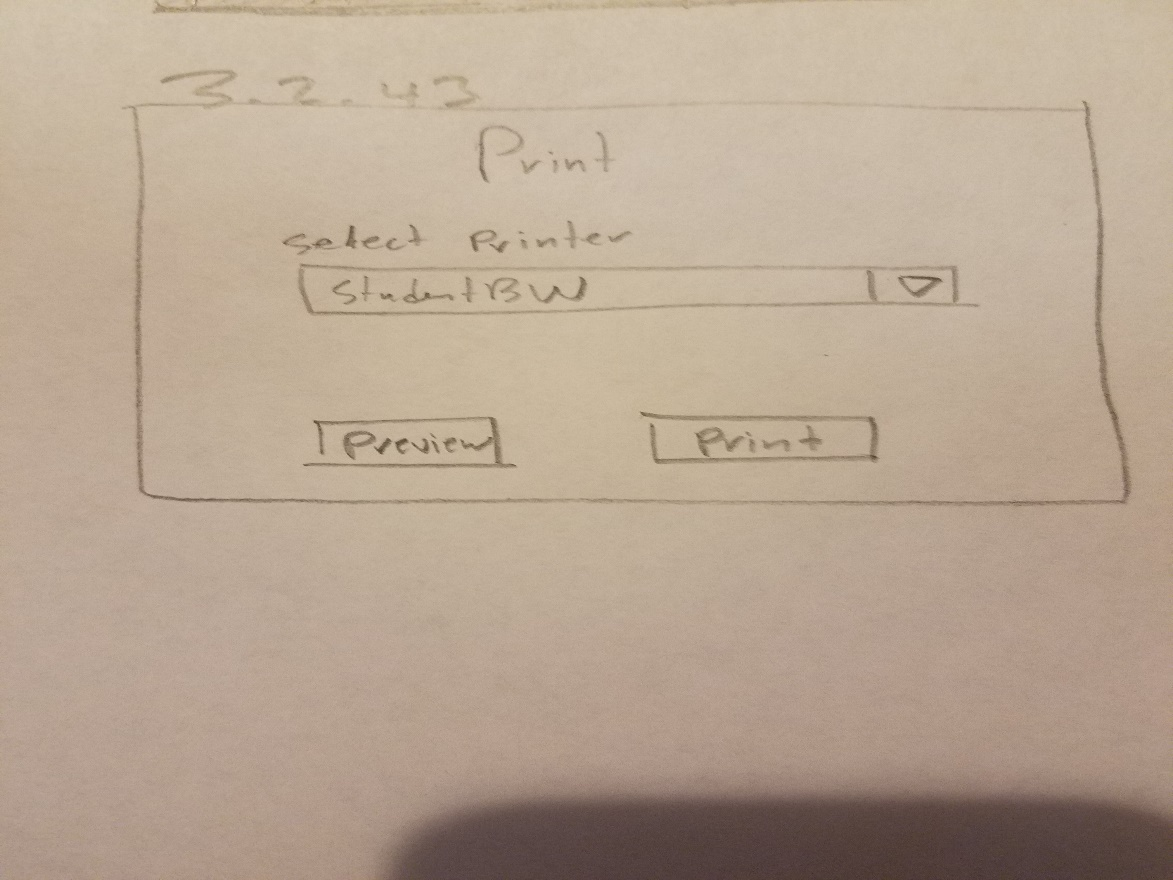 3.2.43
Print
Select Printer
StudentBW
Preview
Print